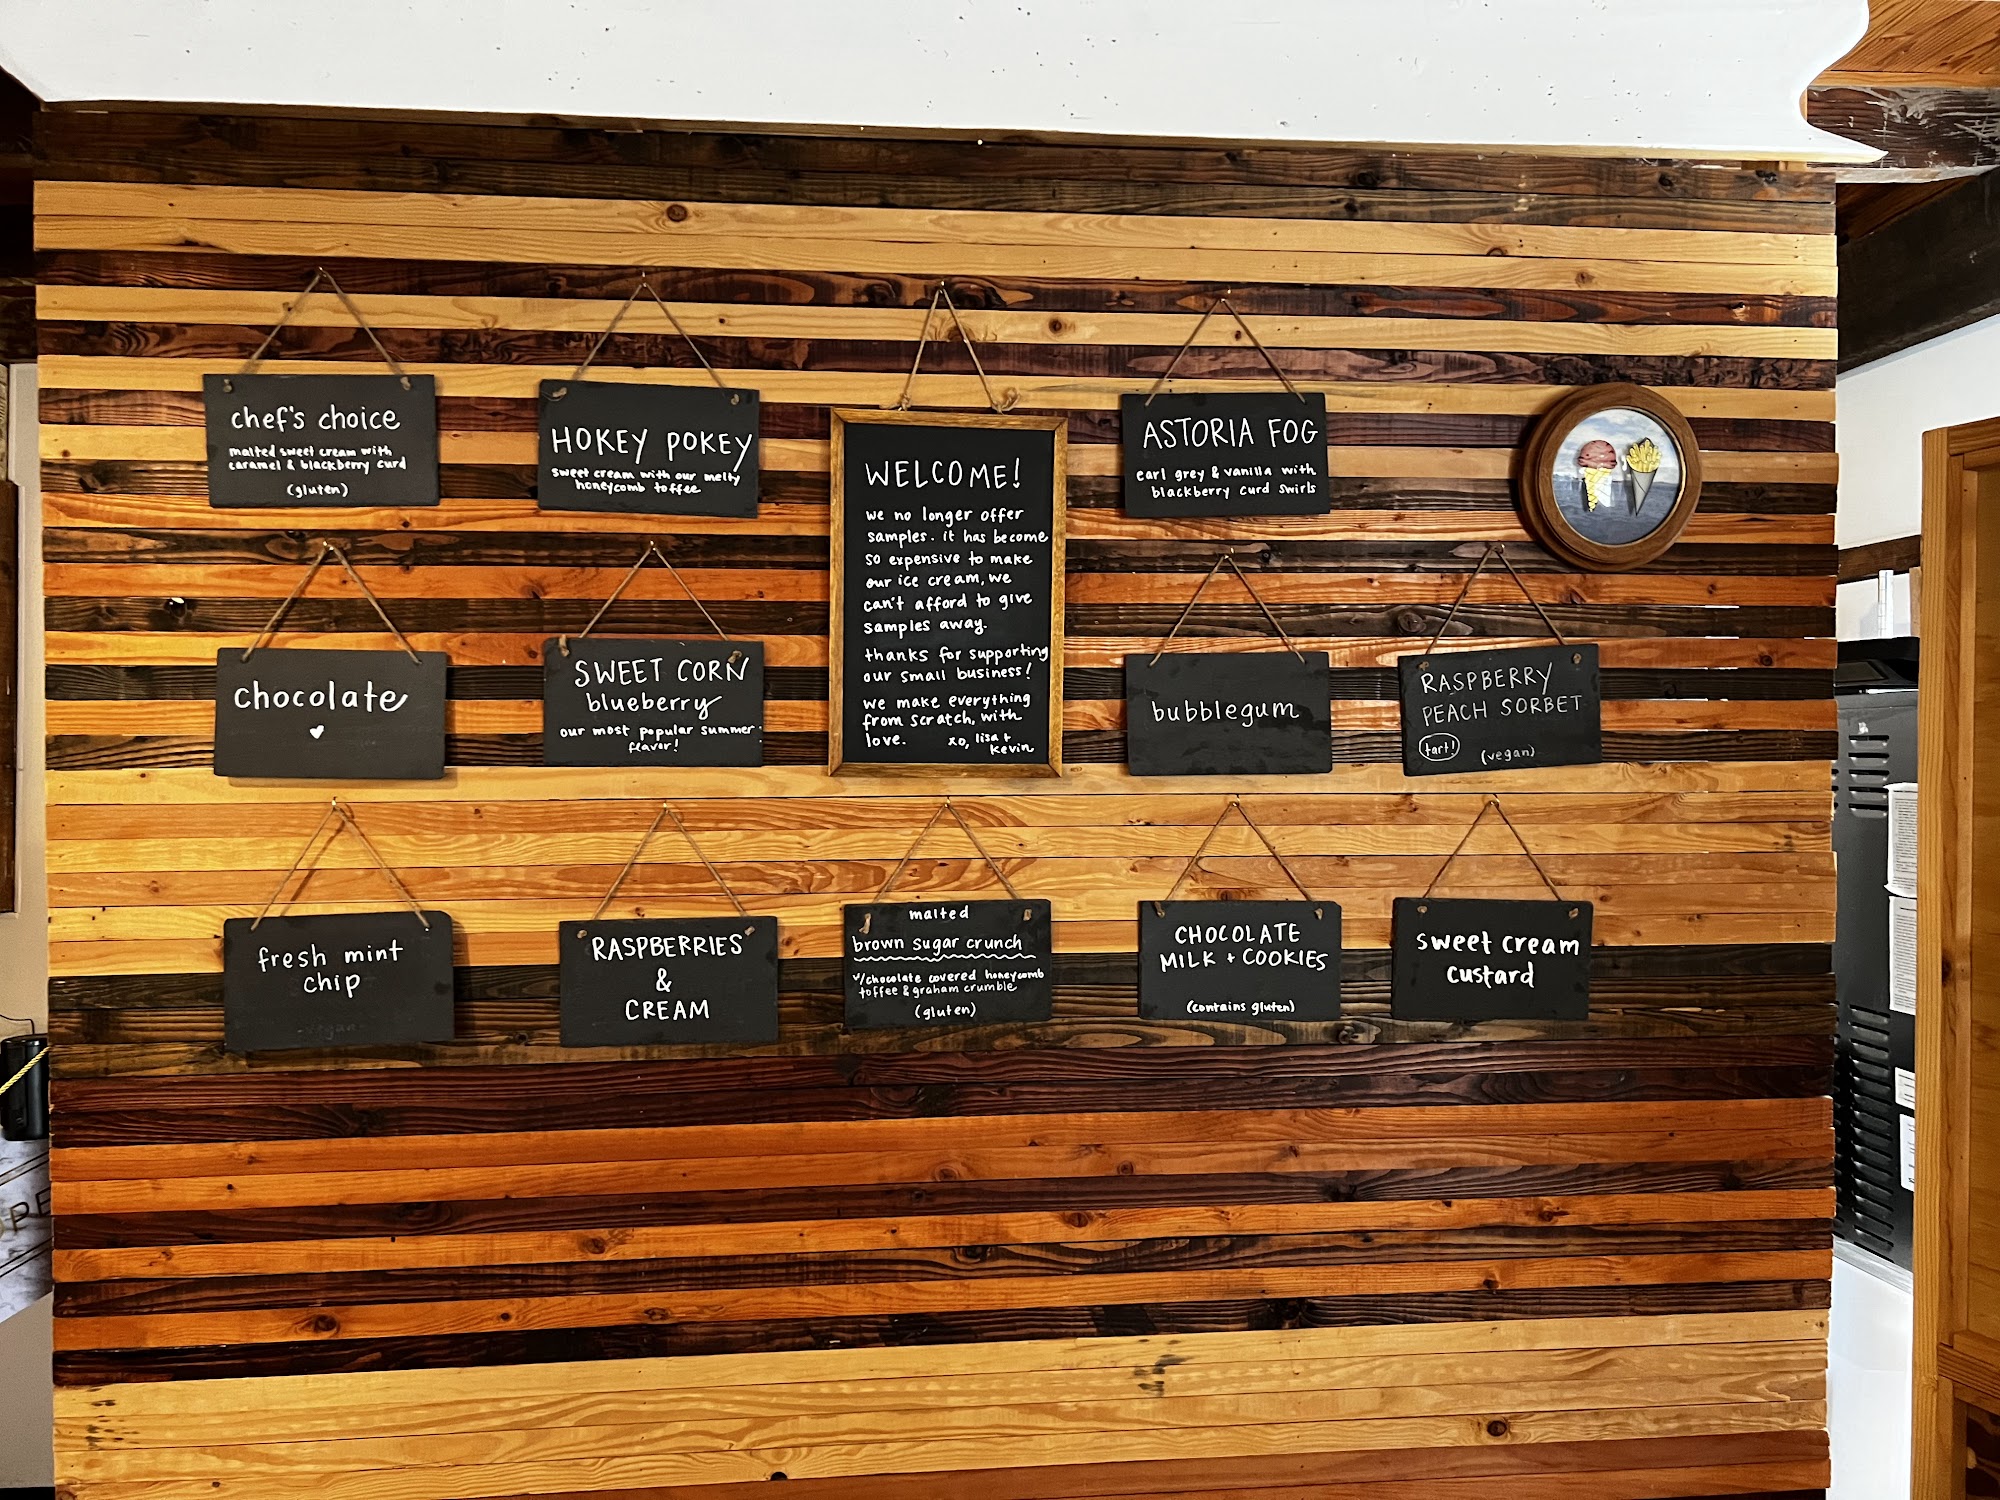 chef's choice
malted sweet cream with
caramel & blackberry curd
(gluten)
HOKEY POKEY
sweet cream with our melty
honeycomb toffee
WELCOME!
we no longer offer
samples. it has become
so expensive to make
our ice cream, we
can't afford to give
samples away.
thanks for supporting
our small business!
we make everything
from scratch, with
love. xo, lisa +
kevin
ASTORIA FOG
earl grey & vanilla with
blackberry curd swirls
chocolate
SWEET CORN
blueberry
our most popular summer
flavor!
bubblegum
RASPBERRY
PEACH SORBET
tart! (vegan)
fresh mint
chip
-vegan-
RASPBERRIES
&
CREAM
malted
brown sugar crunch
w/chocolate covered honeycomb
toffee & graham crumble
(gluten)
CHOCOLATE
MILK + COOKIES
(contains gluten)
sweet cream
custard